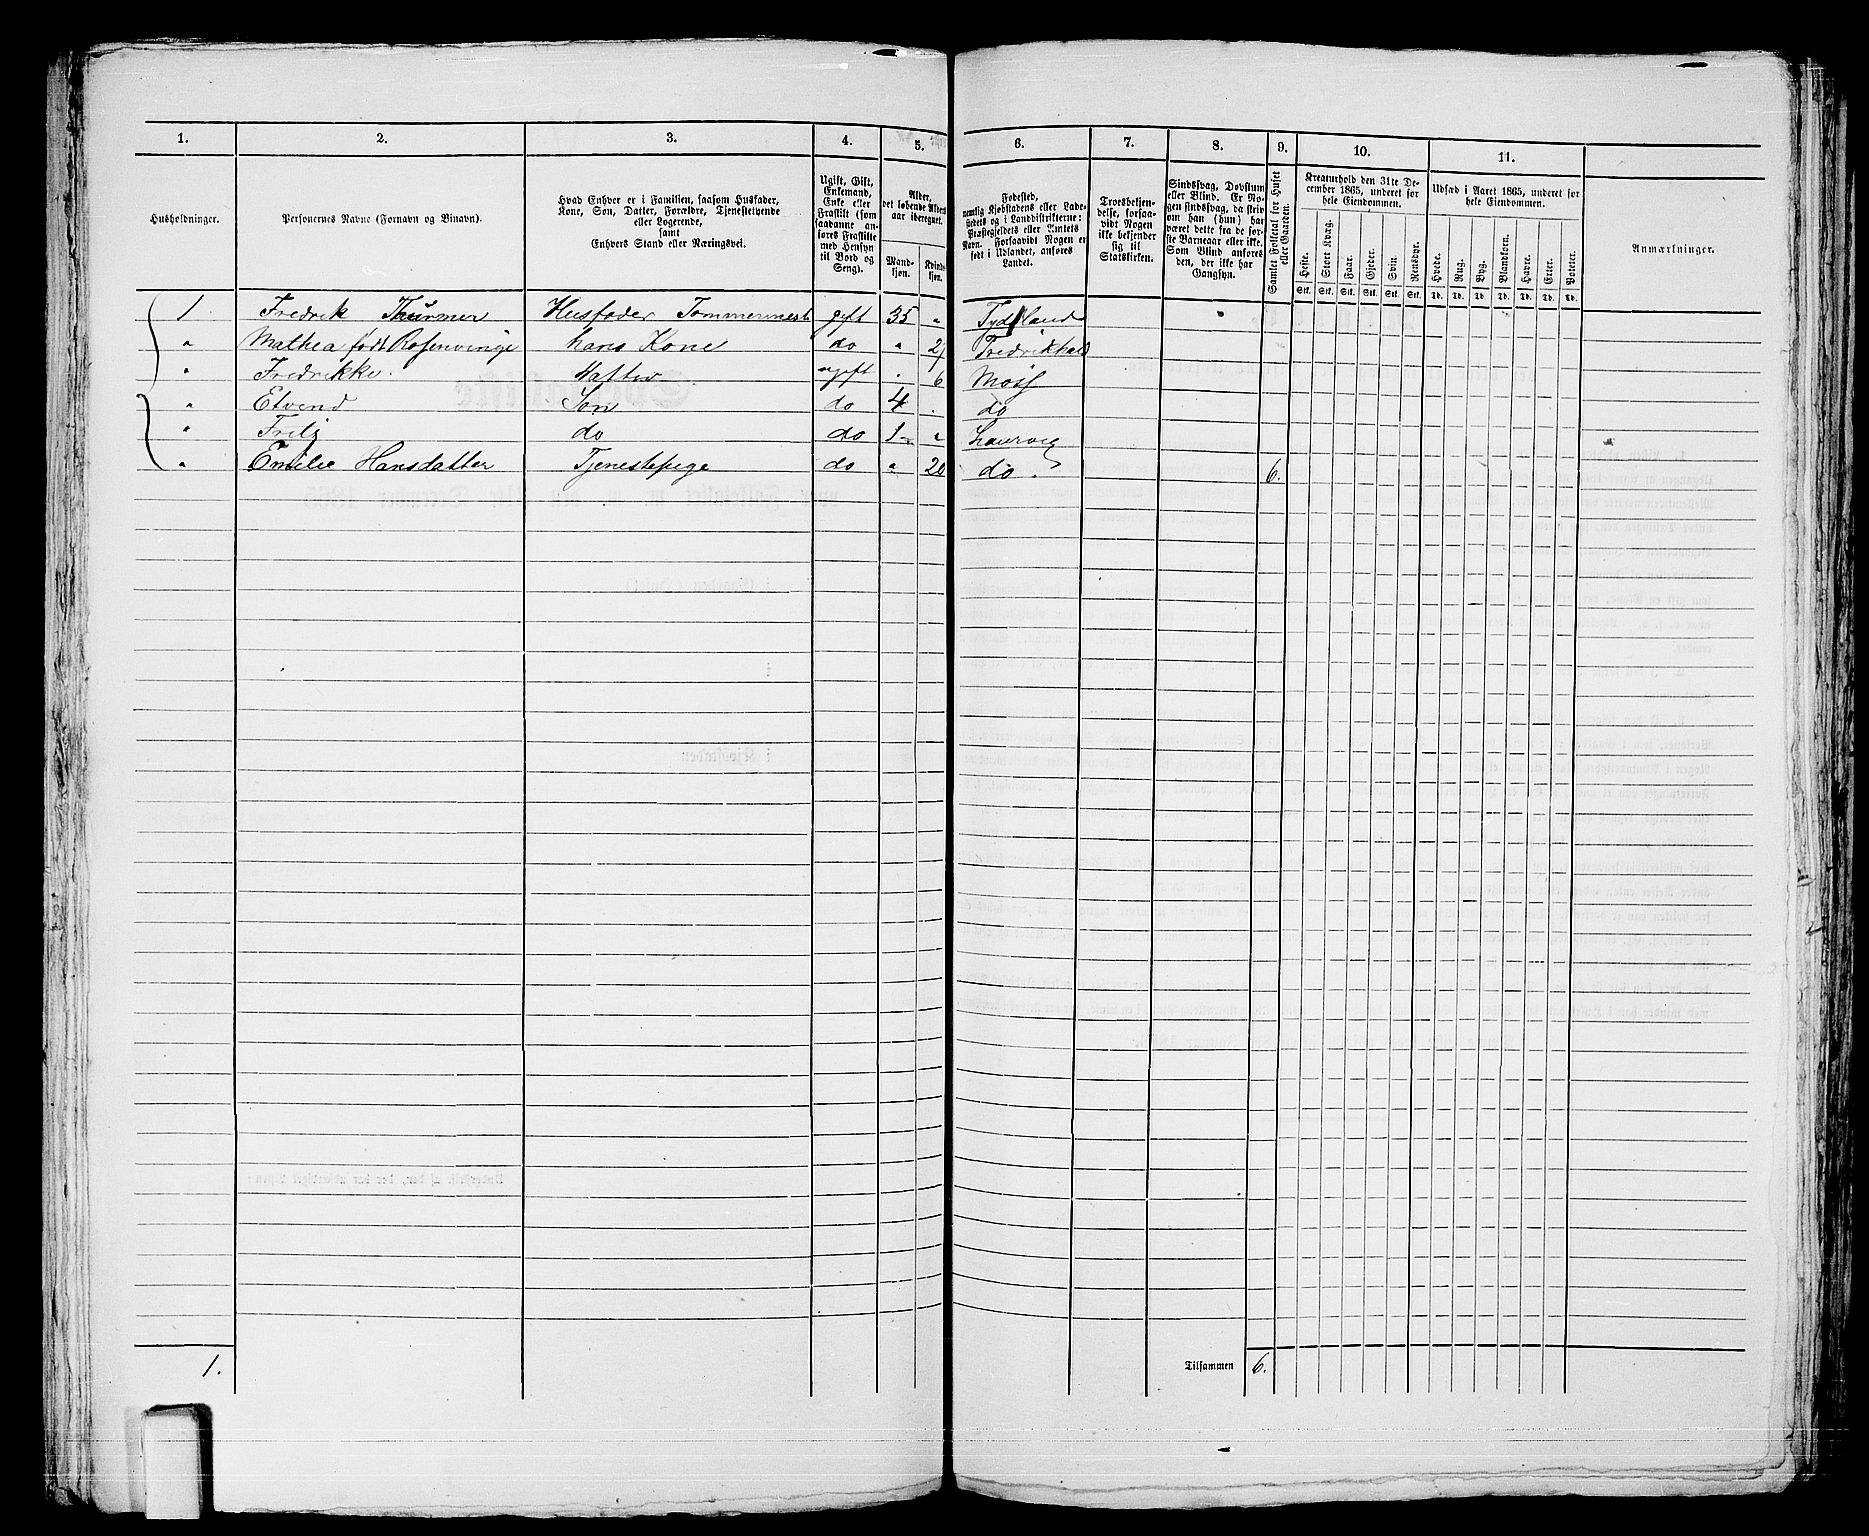 1. 2. 3. 4. 5. 6. 7. 8. 9. 10. 11.
Husholdninger.
Personernes Navne (Fornavn og Binavn).
Hvad Enhver er i Familien, saasom Husfader,
Kone, Søn, Datter, Forældre, Tjenestetyende
eller Logerende,
samt
Enhvers Stand eller Næringsvei.
Ugift, Gift,
Enkemand,
Enke eller
Fraskilt (som
saadanne an-
føres Fraskilte
med Hensyn
til Bord og
Seng).
Alder,
det løbende Alders-
aar iberegnet.
Mand-
kjøn.
Kvinde-
kjøn.
Fødested,
nemlig Kjøbstadens eller Lade-
stedets og i Landdistrikterne:
Præstegjeldets eller Amtets
Navn. Forsaavidt Nogen er
født i Udlandet, anføres
Landet.
Troesbekjen-
delse, forsaa-
vidt Nogen
ikke bekjender
sig til
Statskirken.
Sindssvag, Døvstum
eller Blind. Er No-
gen sindssvag, da skriv
om han (hun) har
været dette fra de før-
ste Barneaar eller ikke.
Som Blind anføres
den, der ikke har
Gangsyn.
Samlet Folketal for Huset
eller Gaarden.
Kreaturhold den 31te De-
cember 1865, underet for
hele Eiendommen.
Heste. Stort Kvæg. Faar. Gjeder. Svin. Rensdyr.
Stk. Stk. Stk. Stk. Stk. Stk.
Udsæd i Aaret 1865, underet for
hele Eiendommen.
Hvede. Rug. Byg. Blandkorn. Havre. Erter. Poteter.
Td. Td. Td. Td. Td. Td. Td.
Anmærkninger.
1 Fredrik Thurmer Husfader Tømmermest gift 35 " Tydskland
" Mathea født Rosenvinge hans Kone do " Fredrikhald
" Fredrikke. Datter ugift . 6 Moss
" Etvend Søn do 4 . do
" Fritz do do 1 " Laurvig
" Emilie Hansdatter Tjenestepige do " 20 do . 6.
1. Tilsammen 6.